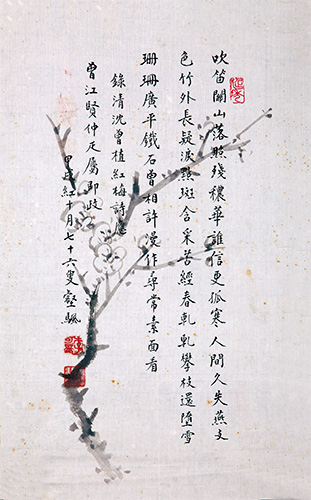 吹笛關山落照殘穠華誰信更孤寒人間久失燕支
色竹外長疑淚點斑含采苦經春軋軋攀枝還墮雪
珊珊廣平鐵石曾相許漫作尋常素面看
錄清沈曾植紅梅詩應
曾江賢仲疋屬即政
十月七十六叟壑颿